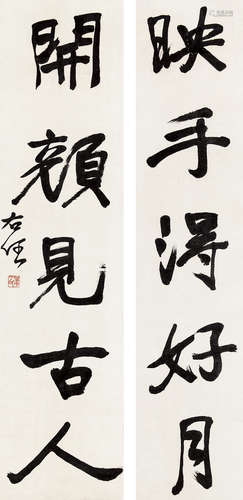 映手得好月
開顏見古人
右任